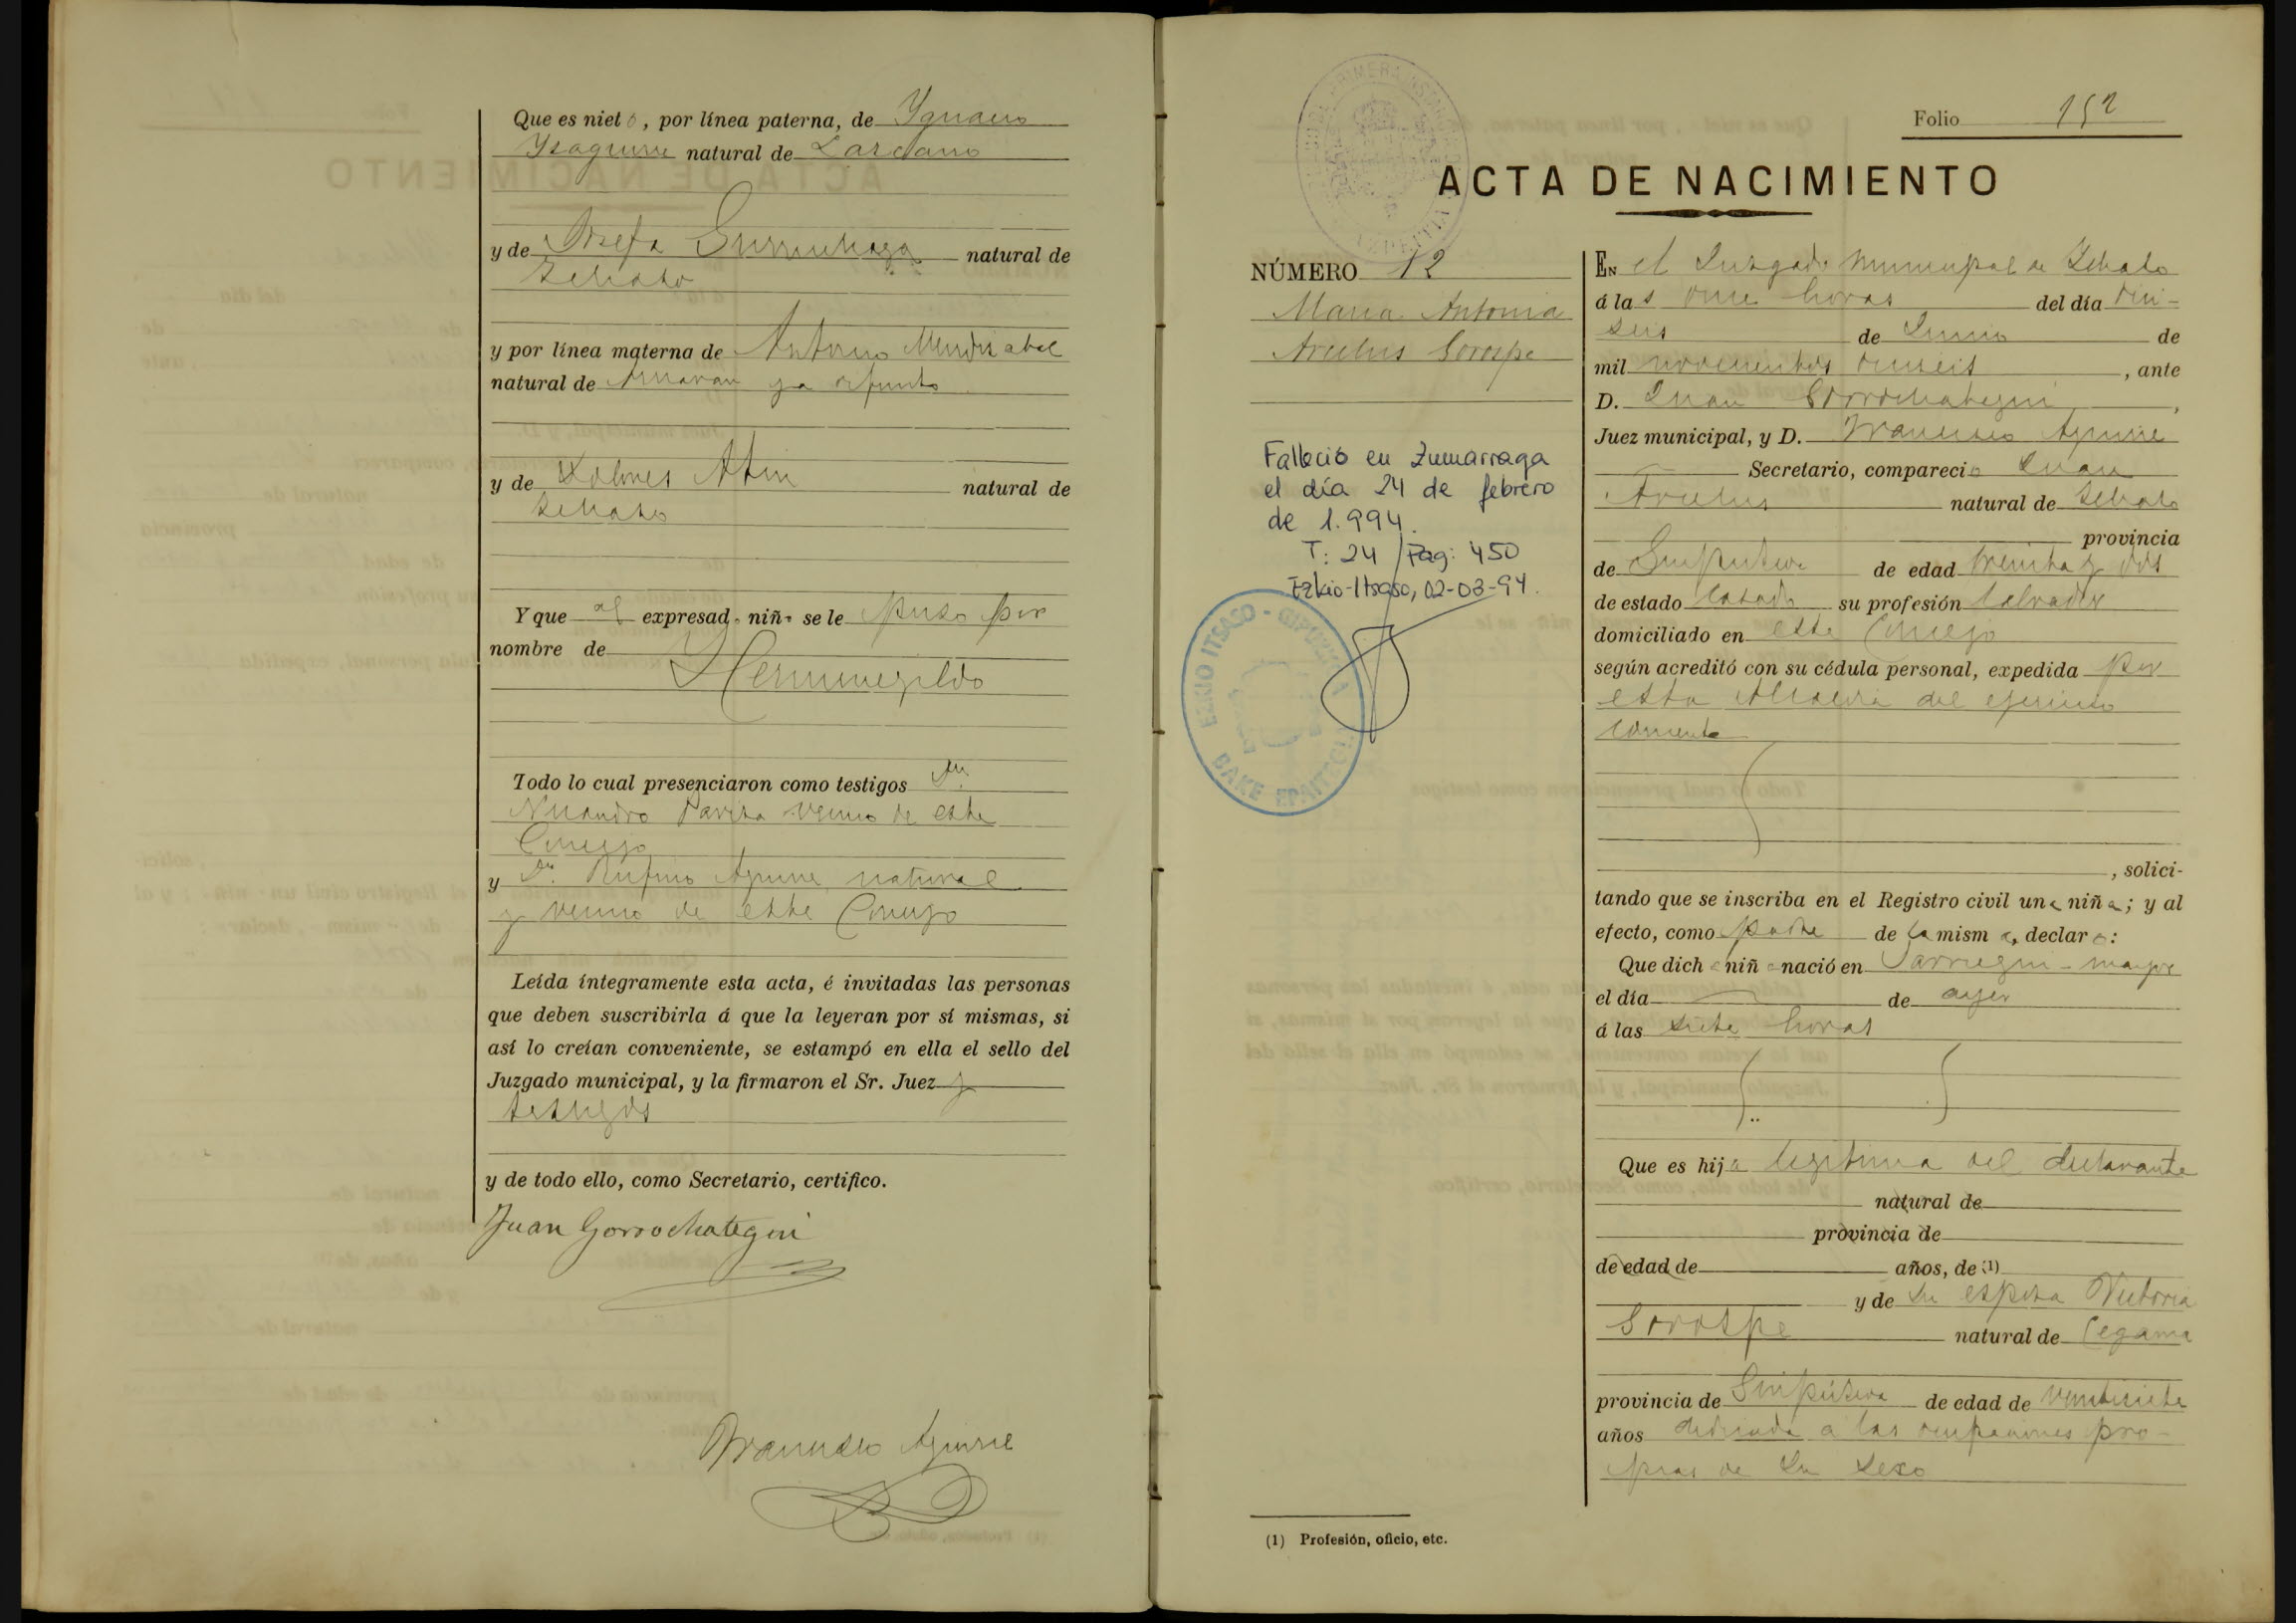 Que es nieto, por línea paterna, de Ygnacio
Ysaguirre natural de Lazcano
y de Josefa Gurruchaga natural de
Ichaso
y por línea materna de Antonio Mendizabal
natural de ya difunto
y de Dolores natural de
Ichaso
Y que al expresado niño se le puso por
nombre de
Hermenegildo
Todo lo cual presenciaron como testigos Dn.
Nicandro vecino de este
Concejo
y Dn. Rufino Aguirre natural
y vecino de este Concejo
Leída íntegramente esta acta, é invitadas las personas
que deben suscribirla á que la leyeran por sí mismas, si
así lo creían conveniente, se estampó en ella el sello del
Juzgado municipal, y la firmaron el Sr. Juez y
testigos
y de todo ello, como Secretario, certifico.
Juan Gorrochategui
Francisco Aguirre
Folio 152
ACTA DE NACIMIENTO
NÚMERO 12
Maria Antonia
Arcelus Gorospe
Falleció en Zumarraga
el día 24 de febrero
de 1.994.
T: 24 / Pag: 450
Ezkio-Itsaso, 02-03-94.
EZKIO ITSASO - GIPUZKOA
BAKE EPAITEGIA
En el Juzgado municipal de Ichaso
á las once horas del día diez
seis de Junio de
mil novecientos dieciseis, ante
D. Juan Gorrochategui,
Juez municipal, y D. Francisco Aguirre
Secretario, compareció Juan
Arcelus natural de Ichaso
provincia
de Guipúzcoa de edad treinta y dos
de estado casado su profesión labrador
domiciliado en este Concejo
según acreditó con su cédula personal, expedida por
esta Alcaldia del ejercicio
corriente
, solici-
tando que se inscriba en el Registro civil una niña; y al
efecto, como padre de la misma, declaró:
Que dicha niña nació en Jarruegui-mayor
el día de ayer
á las siete horas
Que es hija legitima del declarante
natural de
provincia de
de edad de años, de (1)
y de su esposa Victoria
Gorospe natural de Cegama
provincia de Guipúzcoa de edad de veintisiete
años dedicada a las ocupaciones pro-
pias de su sexo
(1) Profesión, oficio, etc.